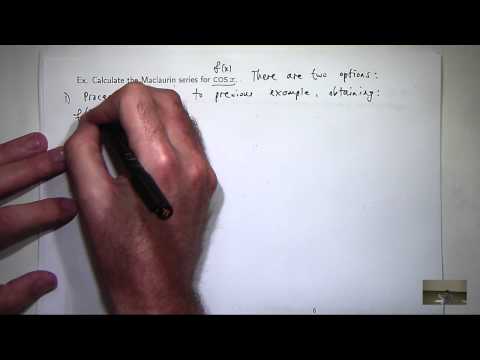 f(x)
Ex. Calculate the Maclaurin series for cos x. There are two options:
1) to previous example, obtaining:
6